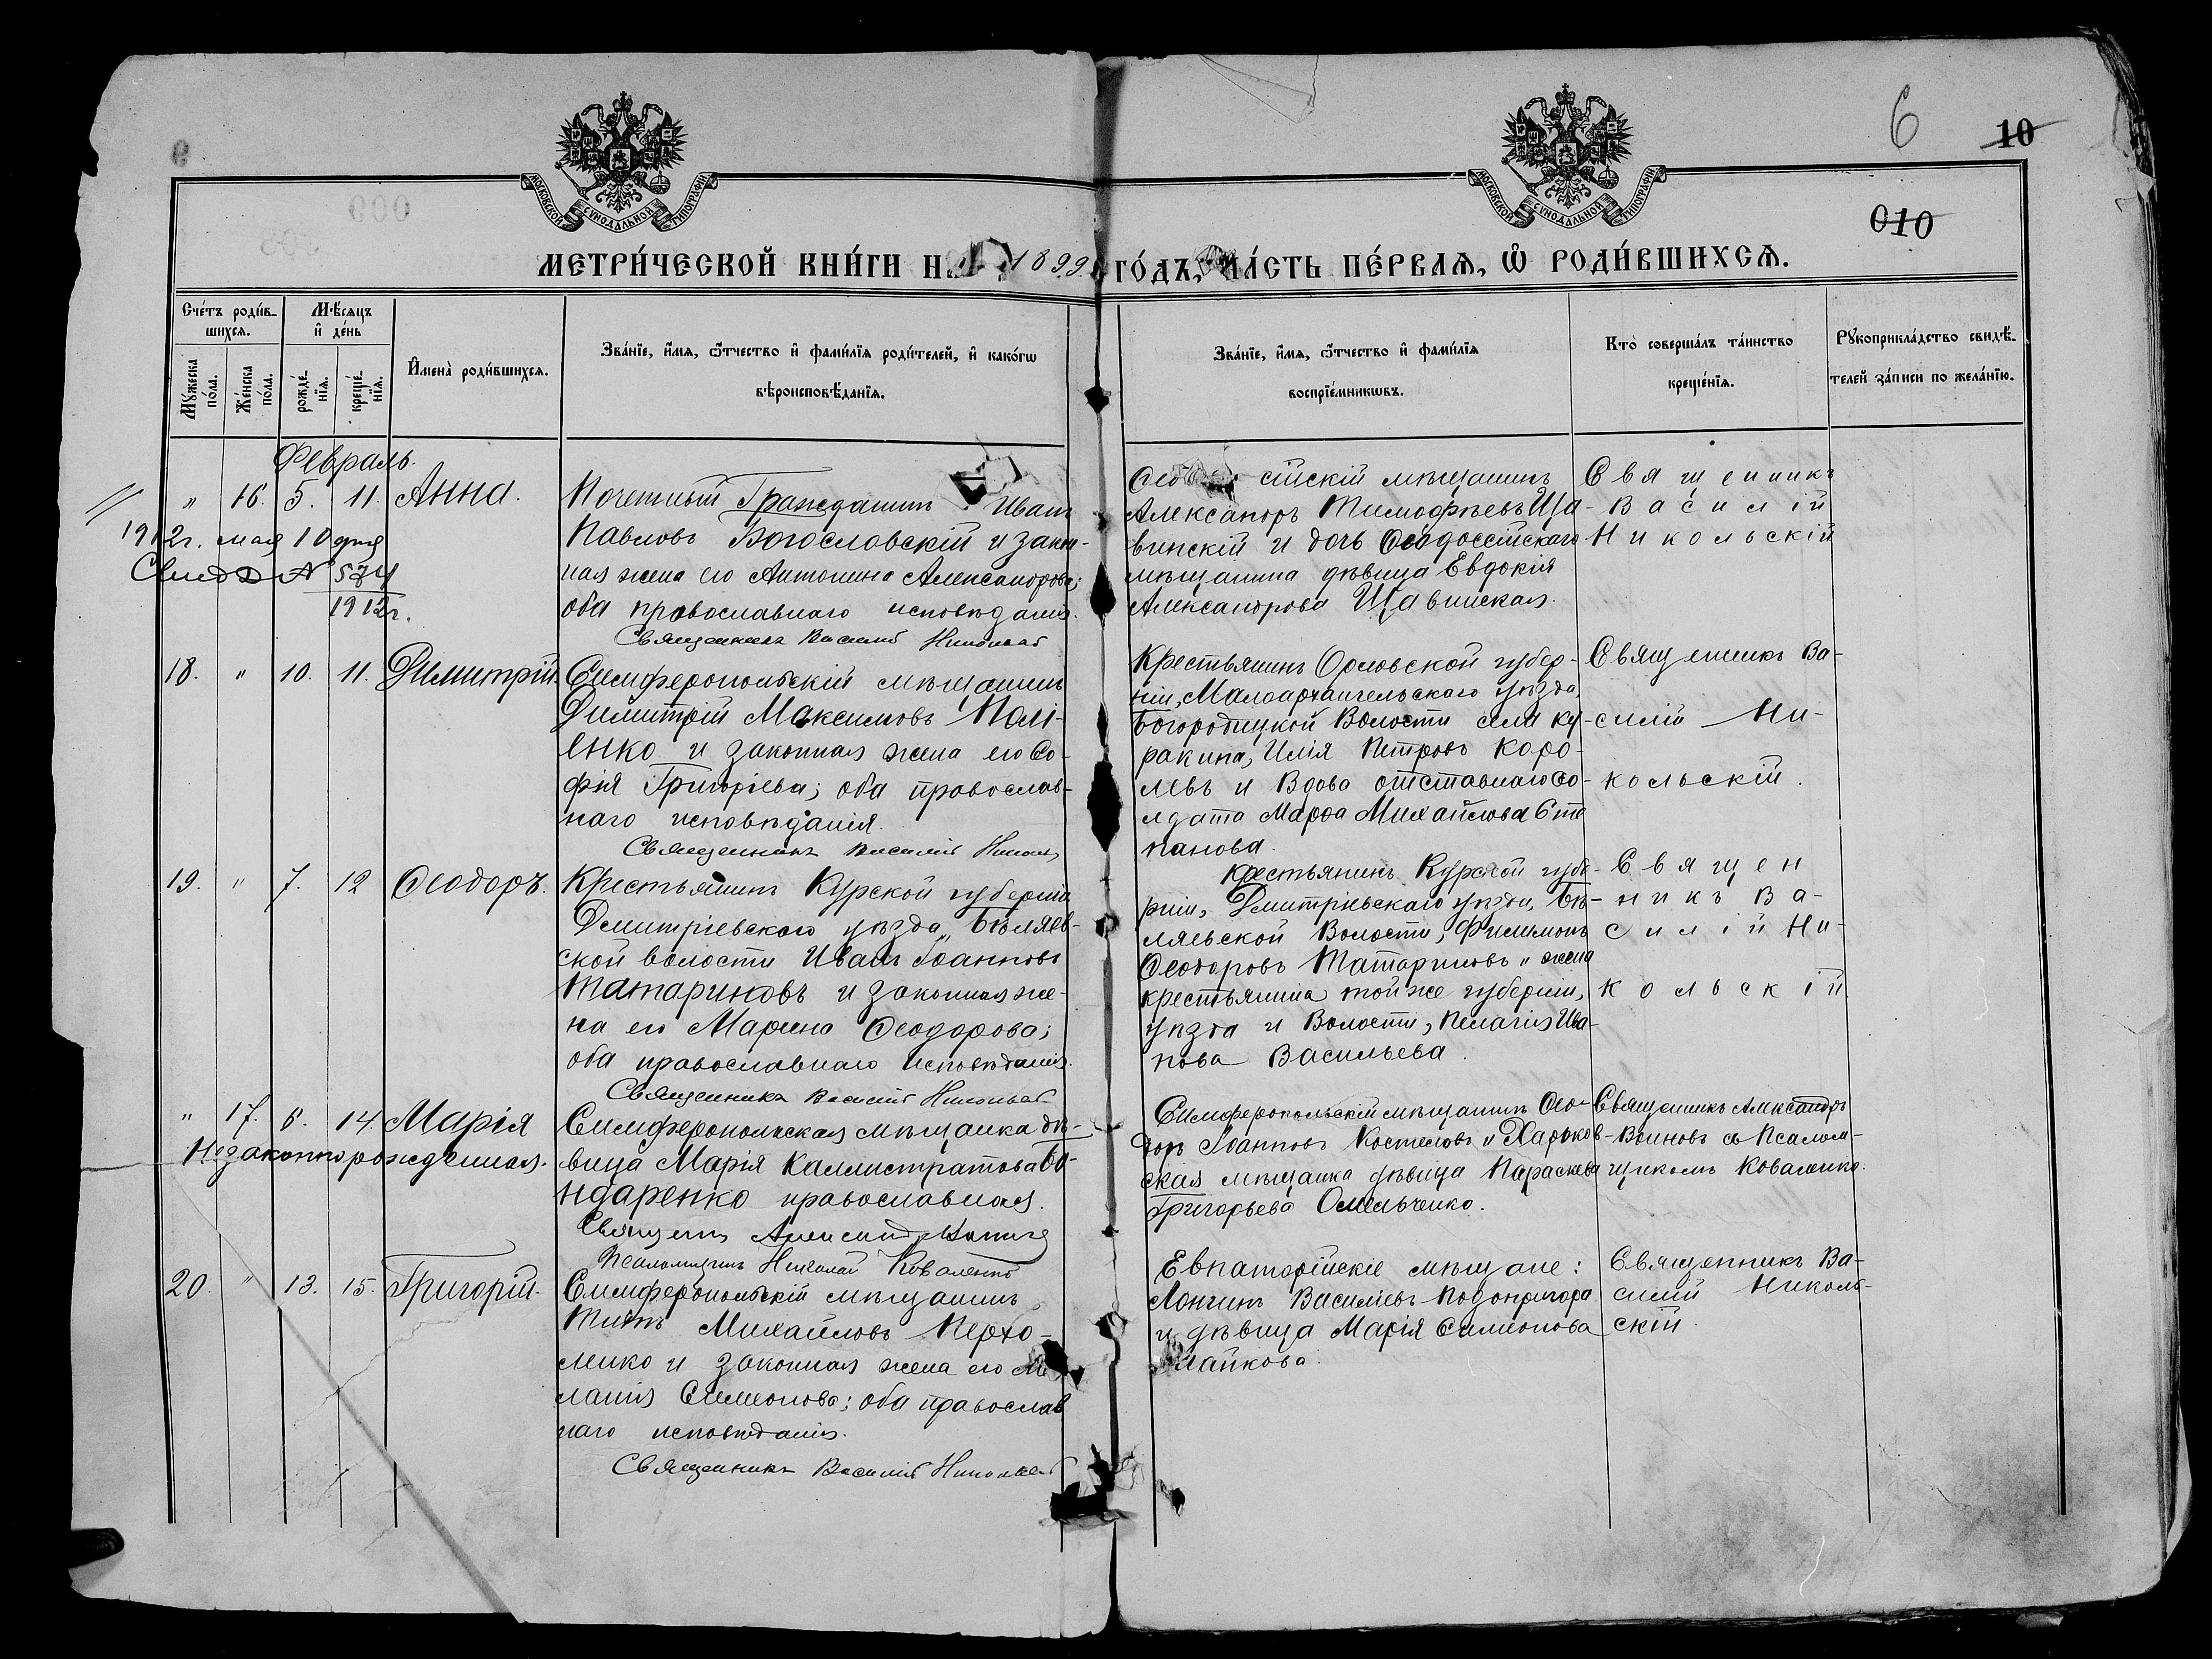 6
10
010
МОСКОВСКОЙ СѴНОДАЛЬНОЙ ТИПОГРАФІИ
МОСКОВСКОЙ СѴНОДАЛЬНОЙ ТИПОГРАФІИ
МЕТРИ́ЧЕСКОЙ КНИ́ГИ НА 1899 ГО́ДЪ, ЧА́СТЬ ПЕ́РВАѦ, Ѽ РОДИ́ВШИХСѦ.
Сче́тъ роди́в-
шихсѧ.
Мѣ́сѧцъ
и҆ де́нь
Мꙋ́жеска по́ла.
Же́нска по́ла.
рожде́-
нїѧ.
креще́-
нїѧ.
И҆мена̀ роди́вшихсѧ.
Зва́нїе, и҆́мѧ, ѻ҆́тчество и҆ фамı́лїѧ роди́телей, и҆ како́гѡ
вѣроисповѣ́данїѧ.
Зва́нїе, и҆́мѧ, ѻ҆́тчество и҆ фамı́лїѧ
воспрїе́мникѡвъ.
Кто̀ соверша́лъ та́инство
креще́нїѧ.
Рꙋкоприкла́дство свидѣ́-
телей за́писи по жела́нїю.
Февраль.
" 16. 5. 11. Анна.
1912г. мая 10 дня
Свид № 574
1912г.
Почетный Гражданинъ Иванъ
Павловъ Богословскій и закон-
ная жена его Антонина Александрова;
оба православнаго исповѣданія.
Священникъ Василій Никольскій
Ѳеодо сійскій мѣщанинъ
Александръ Тимофѣевъ Ща-
винскій и дочь Ѳеодосійскаго
мѣщанина дѣвица Евдокія
Александрова Щавинская.
Священникъ
Василій
Никольскій
18. " 10. 11. Димитрій.
Симферопольскій мѣщанинъ
Димитрій Максимовъ Палі-
енко и законная жена его Со-
фія Григоріева; оба православ-
наго исповѣданія.
Священникъ Василій Николь
Крестьянинъ Орловской губер-
ніи, Малоархангельскаго уѣзда,
Богородицкой Волости села Ку-
ракина, Илія Петровъ Коро-
левъ и Вдова отставнаго Со-
лдата Марфа Михайлова Сте
панова.
Священникъ Ва-
силій Ни-
кольскій.
19. " 7. 12 Ѳеодоръ.
Крестьянинъ Курской губерніи
Дмитріевскаго уѣзда, Бѣляев-
ской волости Иванъ Іоанновъ
Татариновъ и законная же-
на его Марина Ѳеодорова;
оба православнаго исповѣданія.
Священникъ Василій Никольскій
Крестьянинъ Курской губе-
рніи, Дмитріевскаго уѣзда, Бѣ-
ляевской Волости, Филимонъ
Ѳеодоровъ Татариновъ и жена
крестьянина той же губерніи,
уѣзда и Волости, Пелагія Ива-
нова Васильева.
Священ
никъ Ва-
силій Ни-
кольскій
" 17. 6. 14. Марія
Незаконнорожденная.
Симферопольская мѣщанка дѣ-
вица Марія Каллистратова Бо-
ндаренко православная.
Священ. Александръ
Псаломщикъ Николай Коваленко
Симферопольскій мѣщанинъ Ѳео-
доръ Іоанновъ Костиловъ и Харьков-
ская мѣщанка дѣвица Параскева
Григорьева Омельченко.
Священникъ Александръ
Воиновъ съ Псалом-
щикомъ Коваленко.
20. " 13. 15. Григорій.
Симферопольскій мѣщанинъ
Михайловъ Перхо-
менко и законная жена его Ме
ланія Симеонова; оба православ
наго исповѣданія.
Священникъ Василій Никольскій
Евпаторійскіе мѣщане:
Лонгинъ Василіевъ Подопригора
и дѣвица Марія Симеонова
лайкова.
Священникъ Ва-
силій Николь-
скій.